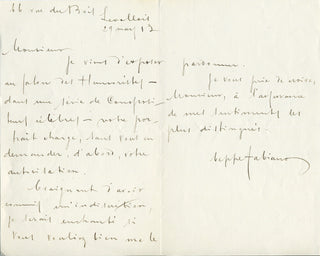 66 rue du Bois
Levallois
29 mars 13
Monsieur
Je viens d'exposer
au salon des Humoristes –
dans une série de Compositeurs
célèbres – votre por-
trait charge, sans vous en
demander, d'abord, votre
autorisation.
Craignant d'avoir
commis indiscrétion,
je serais enchanté si
vous vouliez bien me le
pardonner.
Je vous prie de croire,
Monsieur, à l'assurance
de mes sentiments les
plus distingués.
Neppe Fabiano